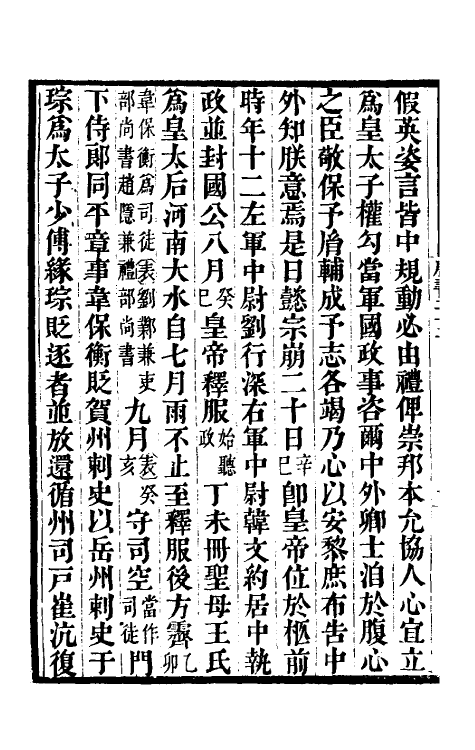 假英姿言皆中規動必由禮俾崇邦本允協人心宜立
爲皇太子權勾當軍國政事咨爾中外卿士洎於腹心
之臣敬保予胤輔成予志各竭乃心以安黎庶布告中
外知朕意焉是日懿宗崩二十日辛巳卽皇帝位於柩前
時年十二左軍中尉劉行深右軍中尉韓文約居中執
政並封國公八月癸巳皇帝釋服始聽政丁未冊聖母王氏
爲皇太后河南大水自七月雨不止至釋服後方霽乙卯
韋保衡爲司徒表劉鄴兼吏部尚書趙隱兼禮部尚書九月表癸亥守司空當作司徒門
下侍郎同平章事韋保衡貶賀州刺史以岳州刺史于
琮爲太子少傅緣琮貶逐者並放還循州司戶崔沆復